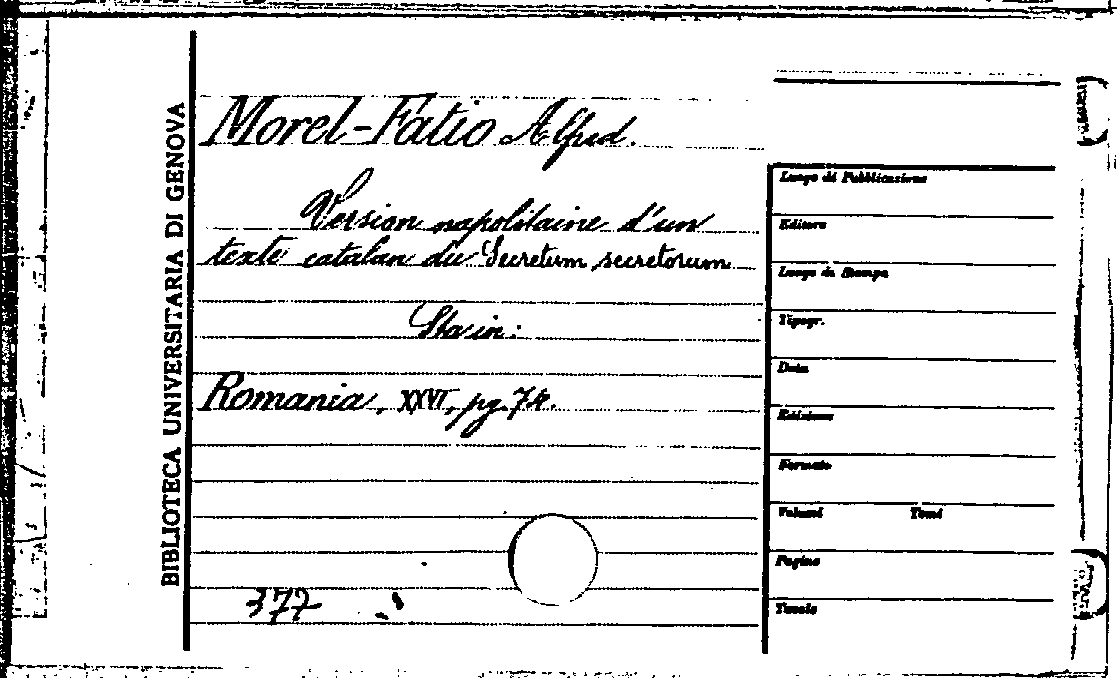 BIBLIOTECA UNIVERSITARIA DI GENOVA
Morel-Fatio Alfred.
Version napolitaine d'un
texte catalan du Secretum secretorum
Sta in:
Romania, XXVI, pg. 74.
377
Luogo di Pubblicazione
Editore
Luogo di Stampa
Tipogr.
Data
Edizione
Formato
Volumi Tomi
Pagine
Tavole